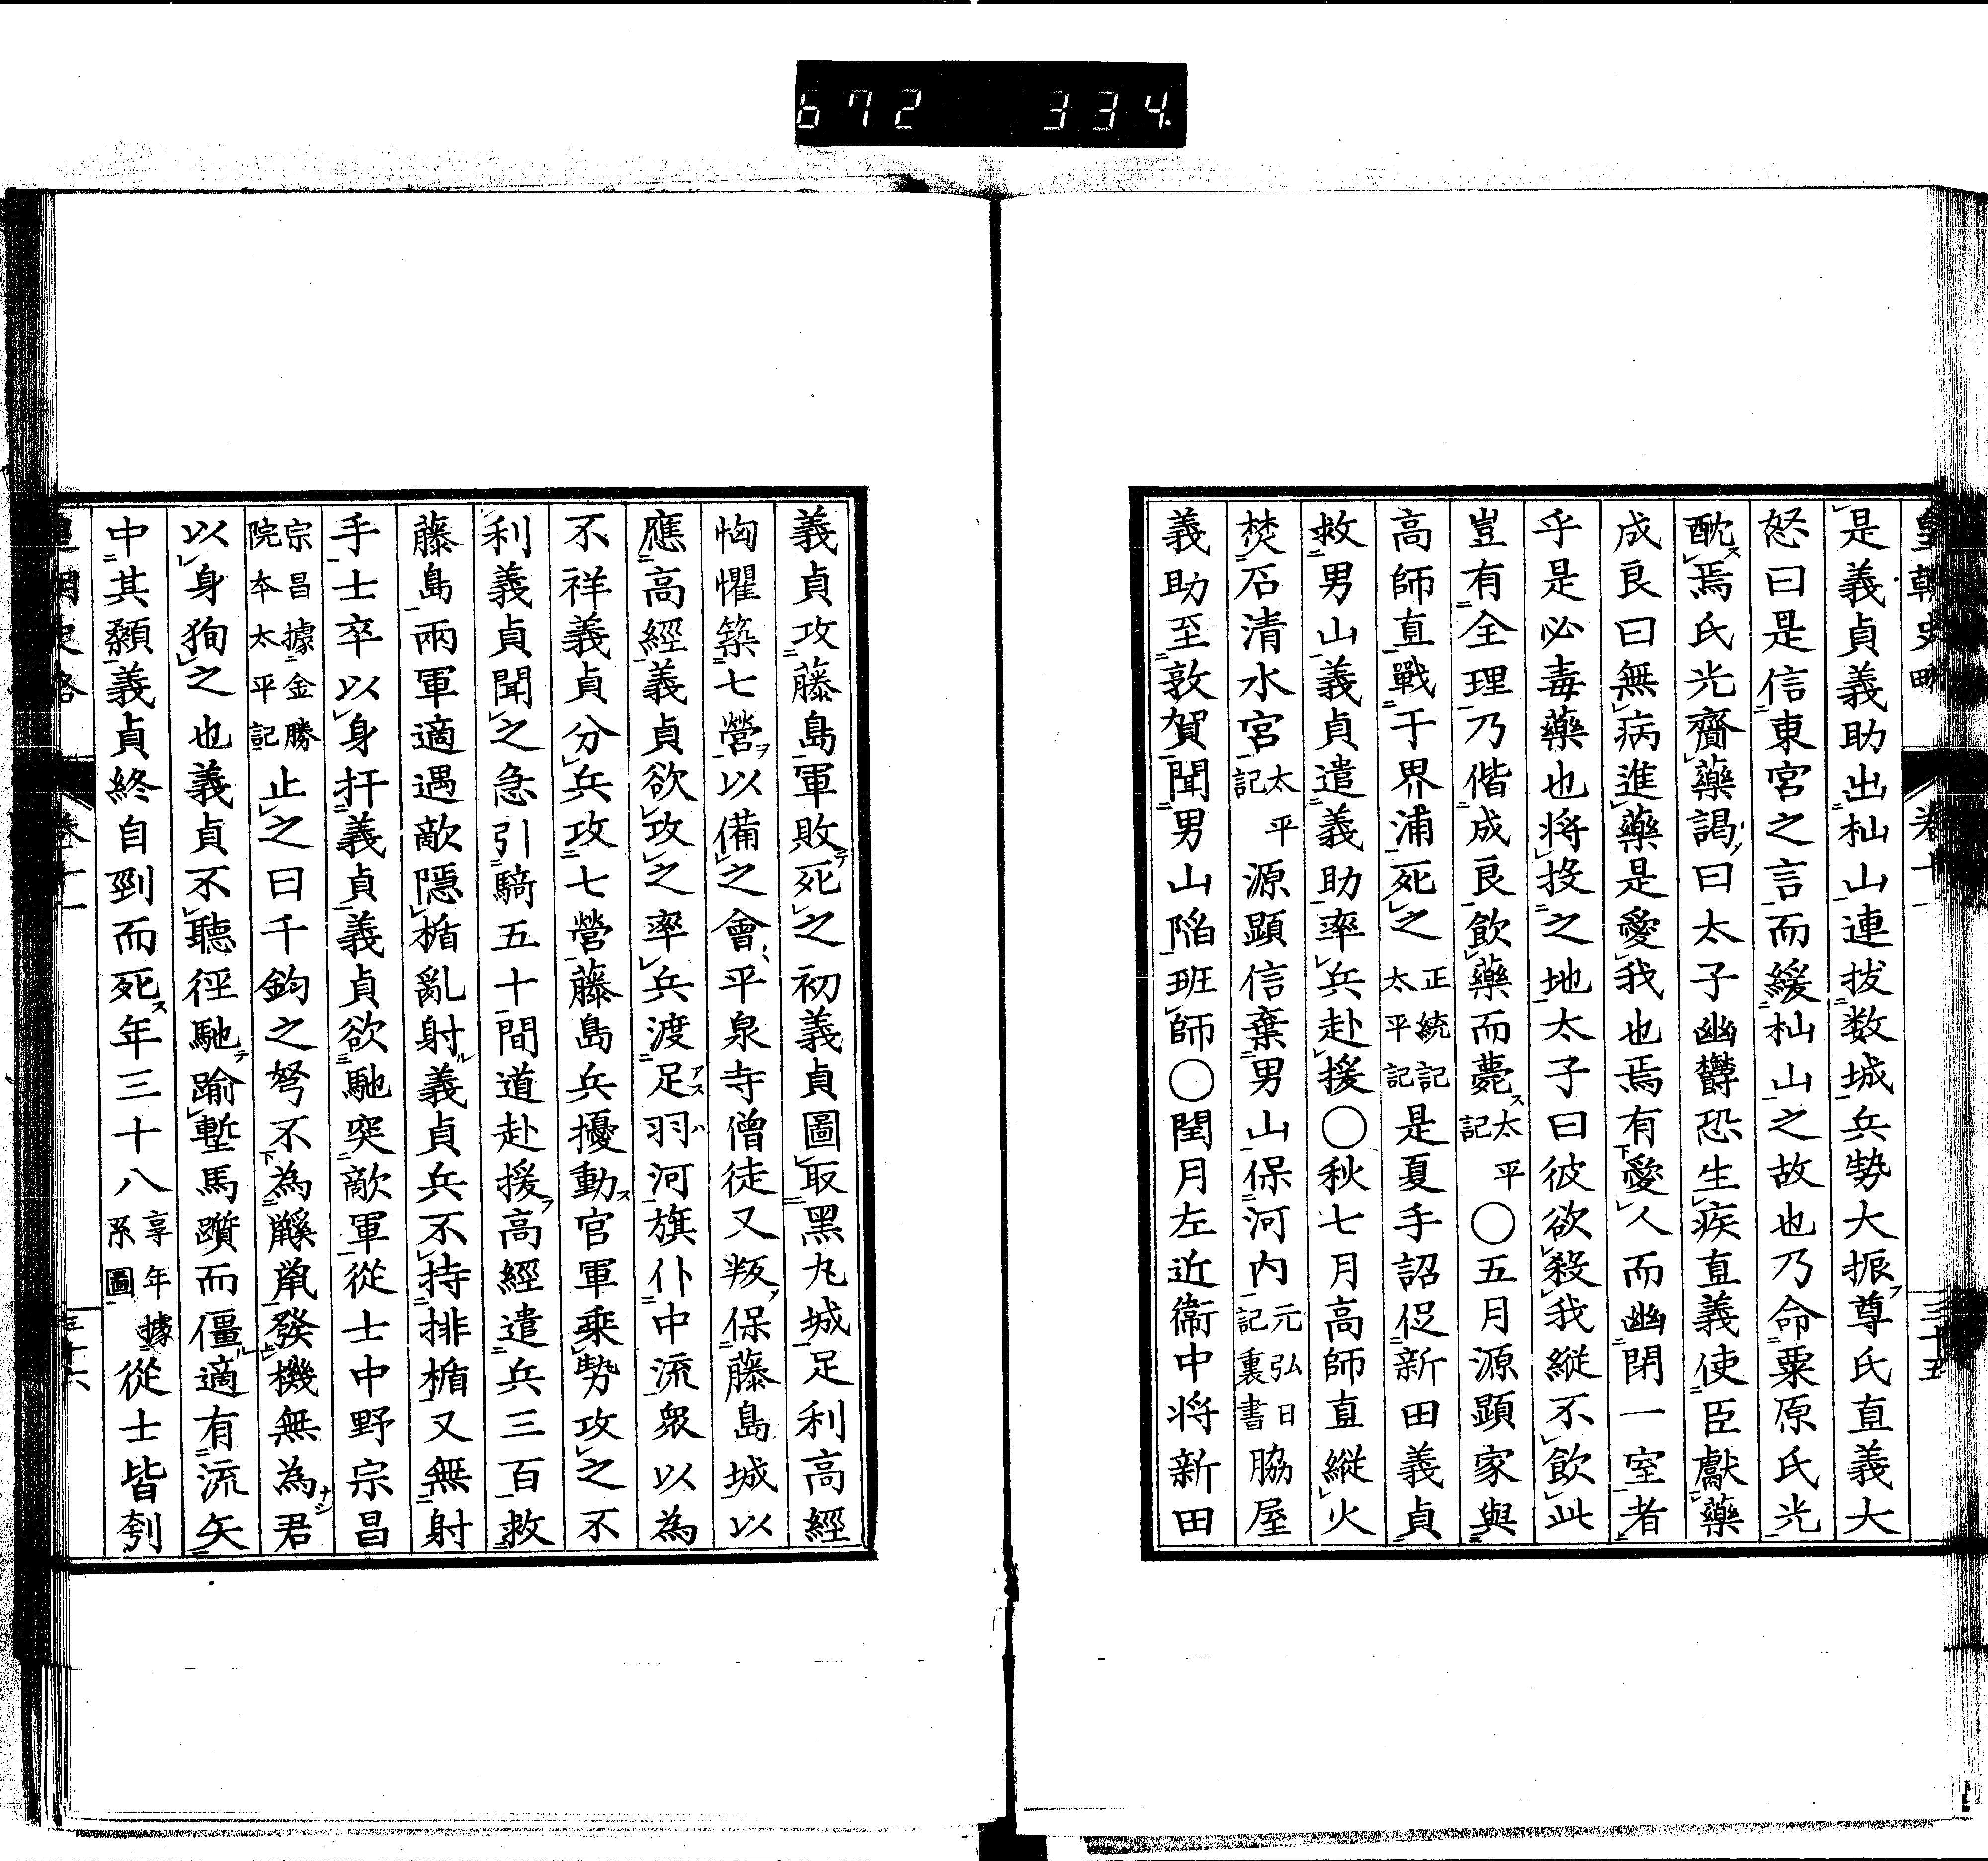 672 334.
皇朝史略 卷十一 三十五
是義貞義助出杣山連拔数城兵勢大振尊氏直義大
怒曰是信東宮之言而緩杣山之故也乃命粟原氏光
酖焉氏光齎藥謁曰太子幽欝恐生疾直義使臣獻藥
成良曰無病進藥是愛我也焉有愛人而幽閉一室者
乎是必毒藥也将投之地太子曰彼欲殺我縱不飲此
豈有全理乃偕成良飲藥而薨太平記〇五月源顯家與
高師直戰于界浦死之正統記太平記是夏手詔促新田義貞
救男山義貞遣義助率兵赴援〇秋七月高師直縱火
焚石清水宮太平記源顯信棄男山保河内元弘日記裏書脇屋
義助至敦賀聞男山陷班師〇閏月左近衞中将新田
義貞攻藤島軍敗死之初義貞圖取黑丸城足利高經
恟懼築七營以備之會平泉寺僧徒又叛保藤島城以
應高經義貞欲攻之率兵渡足羽河旗仆中流衆以為
不祥義貞分兵攻七營藤島兵擾動官軍乗勢攻之不
利義貞聞之急引騎五十間道赴援高經遣兵三百救
藤島兩軍適遇敵隱楯亂射義貞兵不持排楯又無射
手士卒以身扞義貞義貞欲馳突敵軍從士中野宗昌
宗昌據金勝院本太平記止之曰千鈞之弩不為鼷鼠發機無為君
以身狥之也義貞不聽徑馳踰塹馬躓而僵適有流矢
中其顙義貞終自剄而死年三十八享年據系圖從士皆刳
皇朝史略 卷十一 三十六